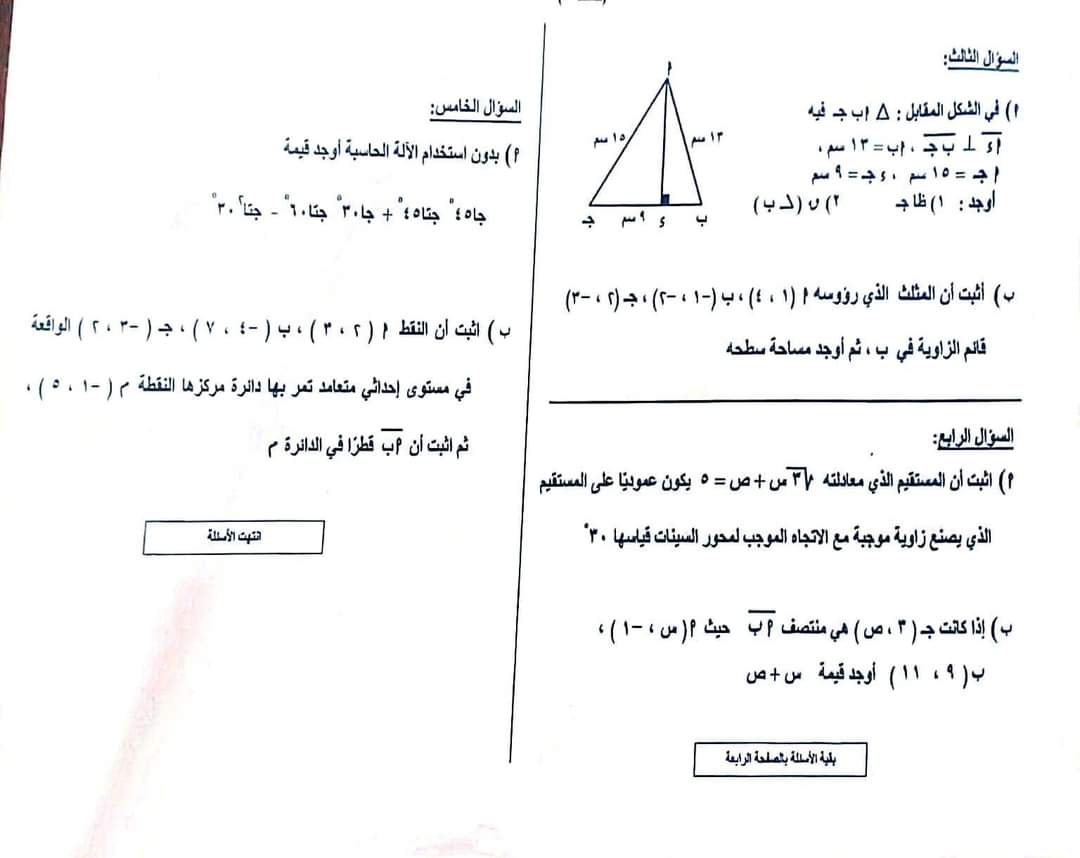 السؤال الثالث:
٢) في الشكل المقابل : Δ ٢ب جـ فيه
٢ء ⊥ بجـ ، ٢ب = ١٣ سم ،
٢جـ = ١٥ سم ، ءجـ = ٩ سم
أوجد : ١) ظا جـ ٢) ق (∠ ب)
٢
١٥ سم
١٣ سم
جـ ٩ سم ء ب
ب) أثبت أن المثلث الذي رؤوسه ٢ (١ ، ٤) ، ب (-١ ، -٢) ، جـ (٢ ، -٣)
قائم الزاوية في ب ، ثم أوجد مساحة سطحه
السؤال الرابع:
٢) اثبت أن المستقيم الذي معادلته √٣ س + ص = ٥ يكون عموديًا على المستقيم
الذي يصنع زاوية موجبة مع الاتجاه الموجب لمحور السينات قياسها ٣٠°
ب) إذا كانت جـ (٣ ، ص) هي منتصف ٢ب حيث ٢(س ، -١) ،
ب( ٩ ، ١١ ) أوجد قيمة س + ص
بقية الأسئلة بالصفحة الرابعة
السؤال الخامس:
٢) بدون استخدام الآلة الحاسبة أوجد قيمة
جا٤٥° جتا٤٥° + جا٣٠° جتا٦٠° - جتا٢ ٣٠°
ب) اثبت أن النقط ٢ (٢ ، ٣) ، ب (-٤ ، ٧) ، جـ (-٣ ، ٢) الواقعة
في مستوى إحداثي متعامد تمر بها دائرة مركزها النقطة م (-١ ، ٥) ،
ثم اثبت أن ٢ب قطرًا في الدائرة م
انتهت الأسئلة